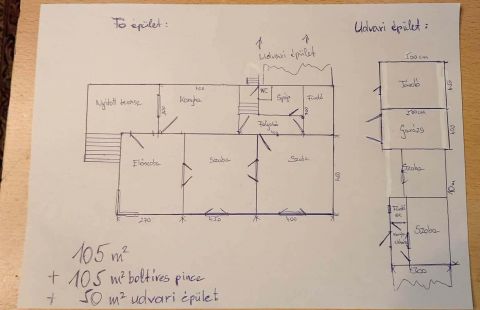 Fő épület:
Udvari épület:
Udvari épület
500 cm
Tároló
Nyitott terasz
Konyha
WC
Spájz
Fürdő
Folyosó
500 cm
Garázs
400
Előszoba
Szoba
Szoba
Szoba
400
Szoba
270
450
400
105 m²
+ 105 m² boltíves pince
+ 50 m² udvari épület